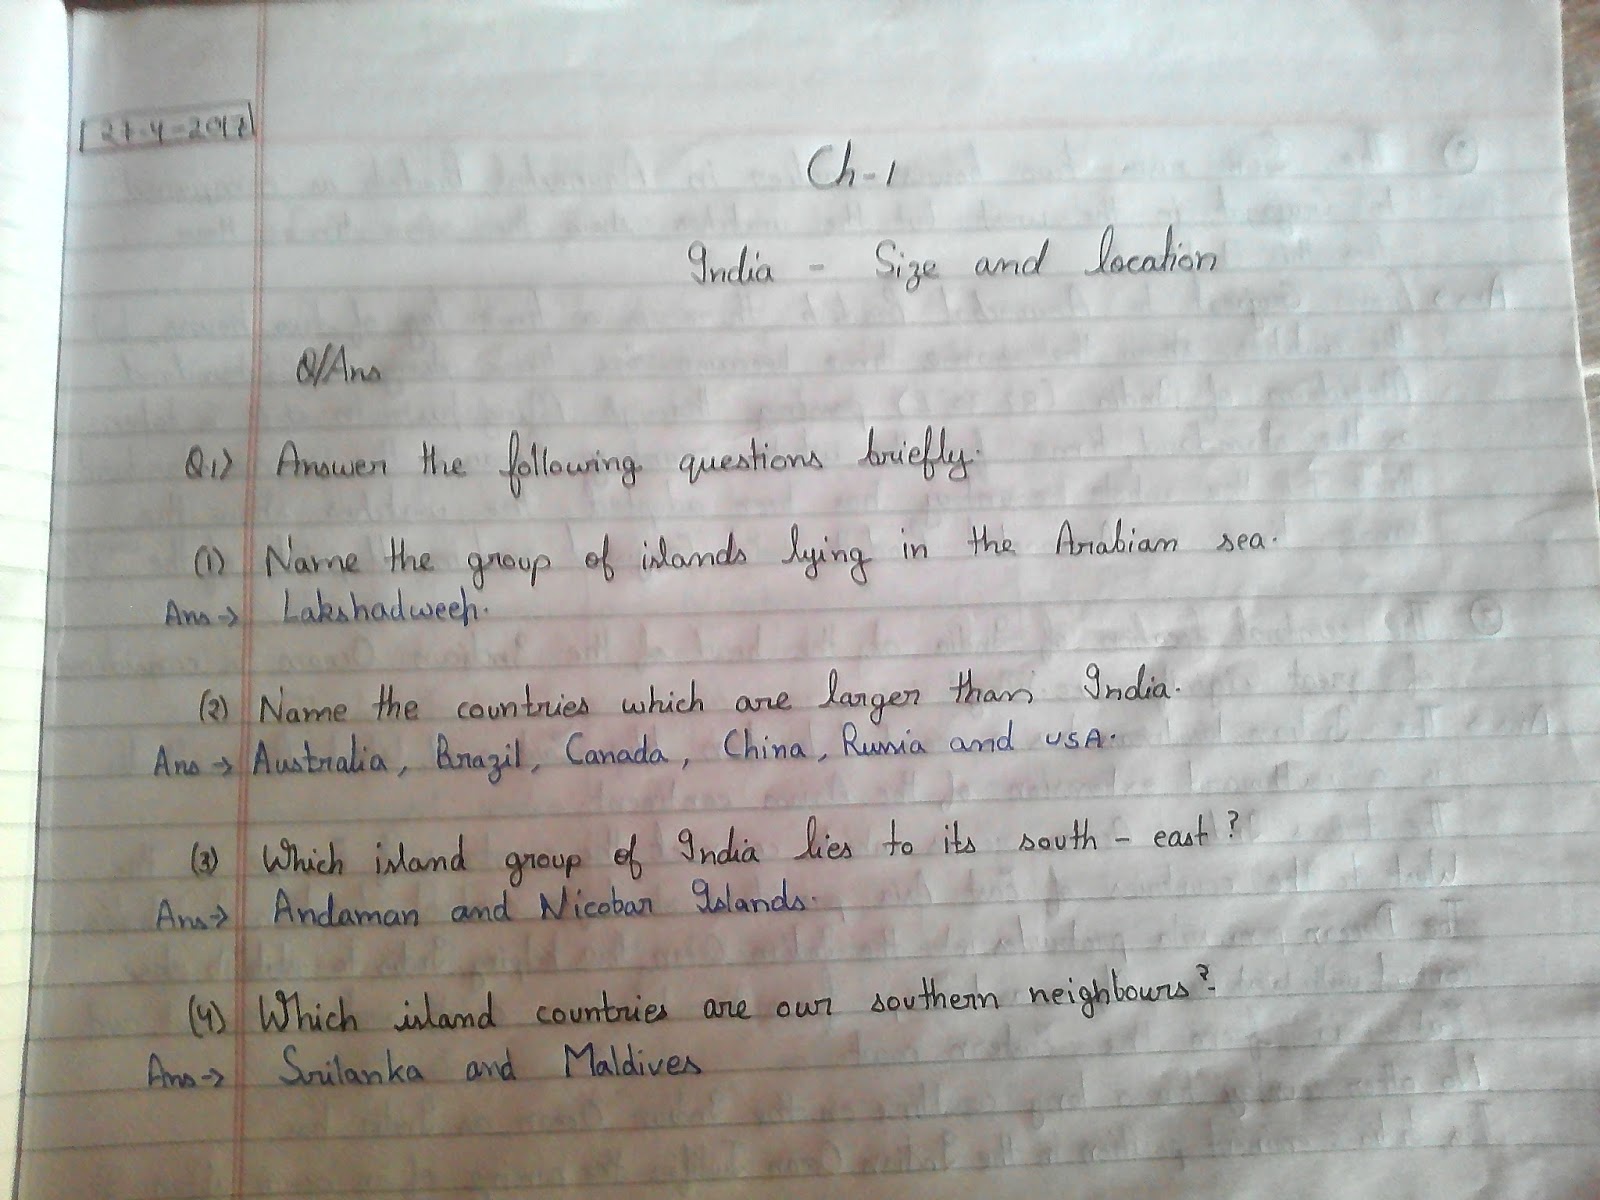 27-4-2017
Ch-1
India - Size and location
Q/Ans
Q.1) Answer the following questions briefly.
(1) Name the group of islands lying in the Arabian sea.
Ans → Lakshadweep.
(2) Name the countries which are larger than India.
Ans → Australia, Brazil, Canada, China, Russia and USA.
(3) Which island group of India lies to its south - east?
Ans → Andaman and Nicobar Islands.
(4) Which island countries are our southern neighbours?
Ans → Srilanka and Maldives